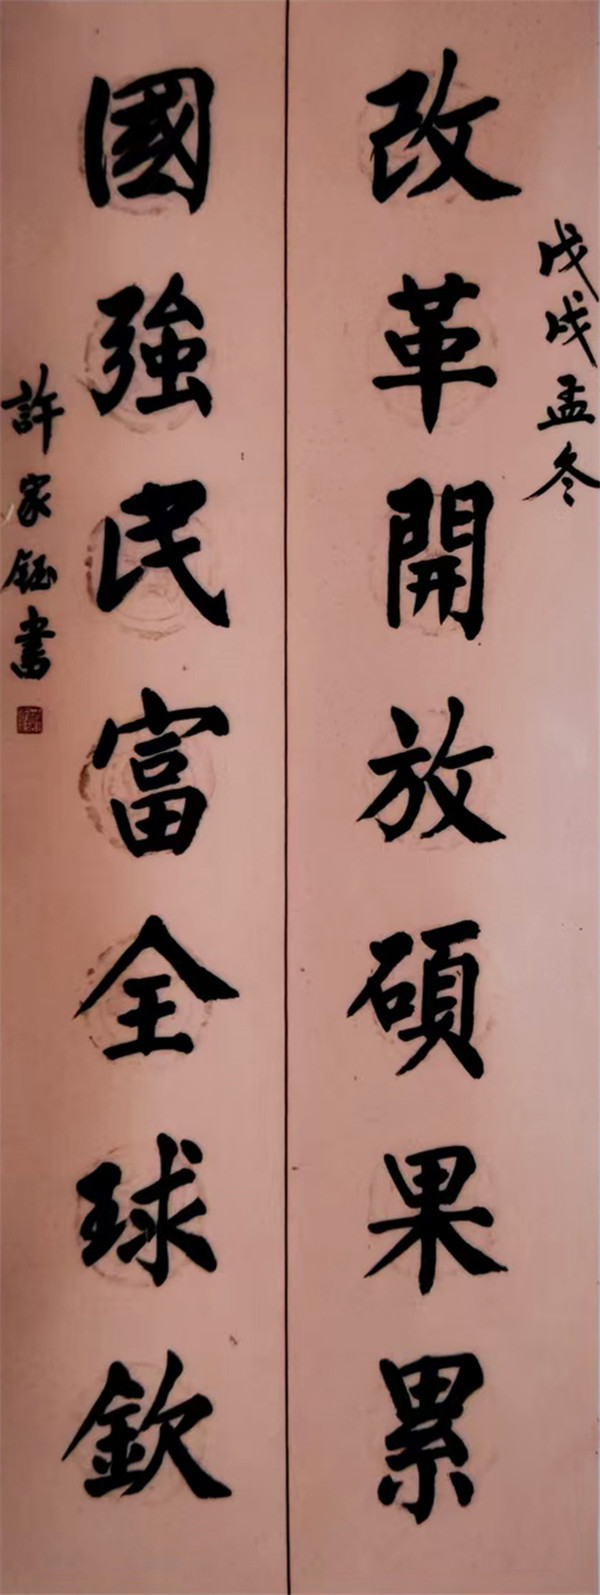 戊戌孟冬
改革開放碩果累
國強民富全球欽
許家鈺書